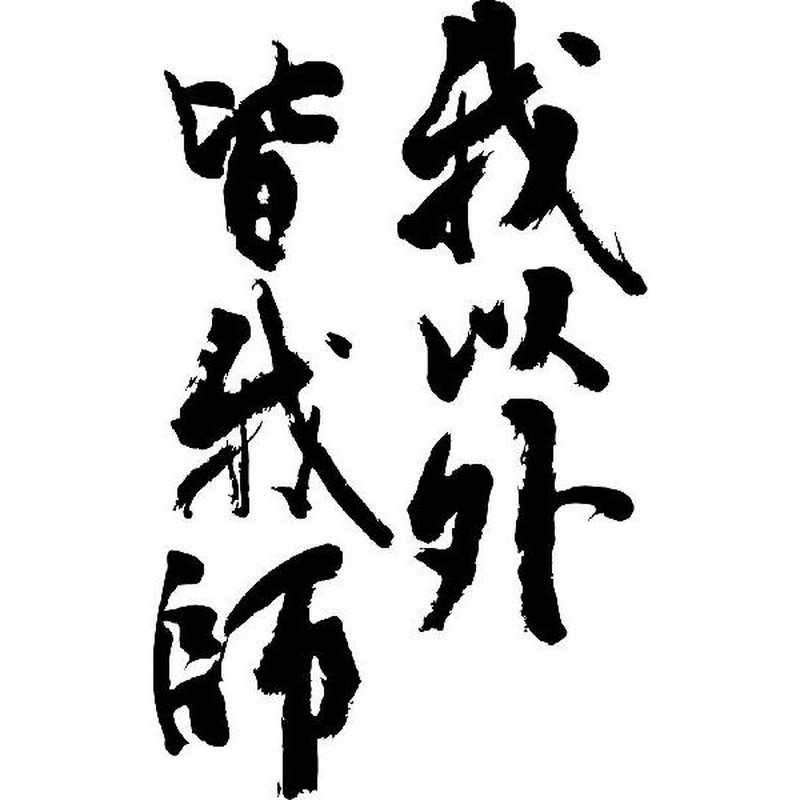 我以外
皆我師